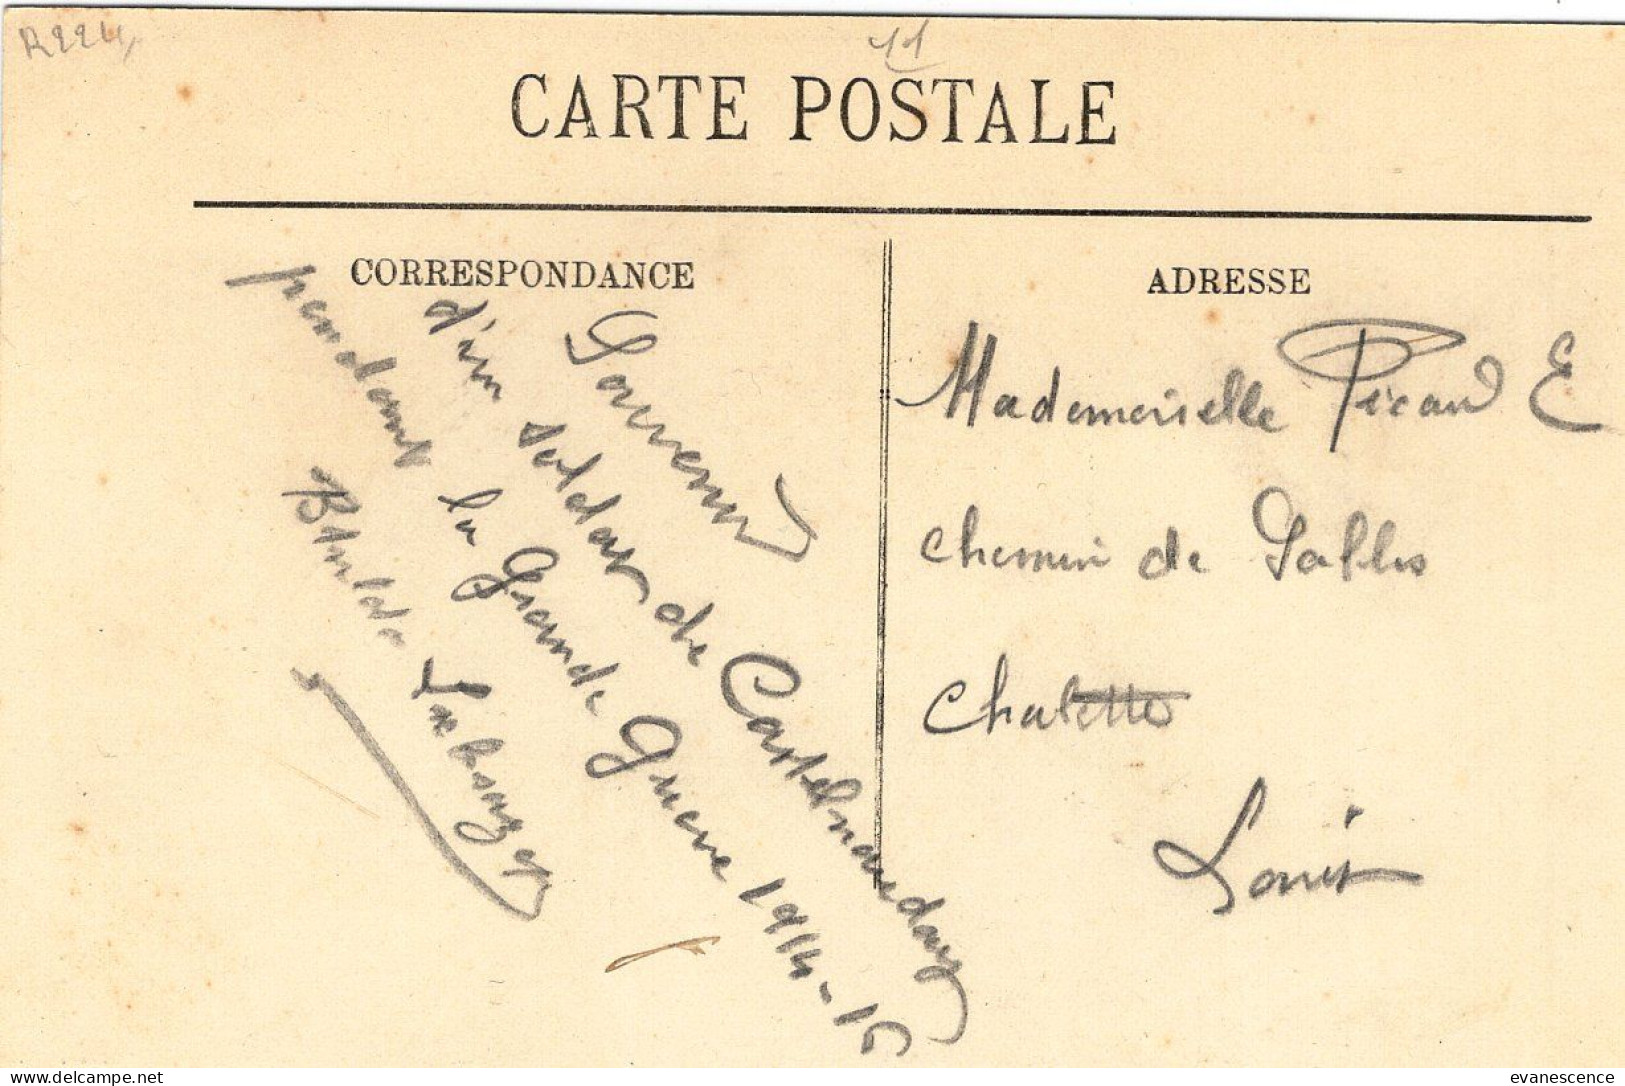 R224
11
CARTE POSTALE
CORRESPONDANCE
Souvenir
d'un soldat de Castelnaudary
pendant la Grande Guerre 1914-15
ADRESSE
Mademoiselle Picard E
chemin de Sables
Chalette
Loiret
delcampe.net
evanescence